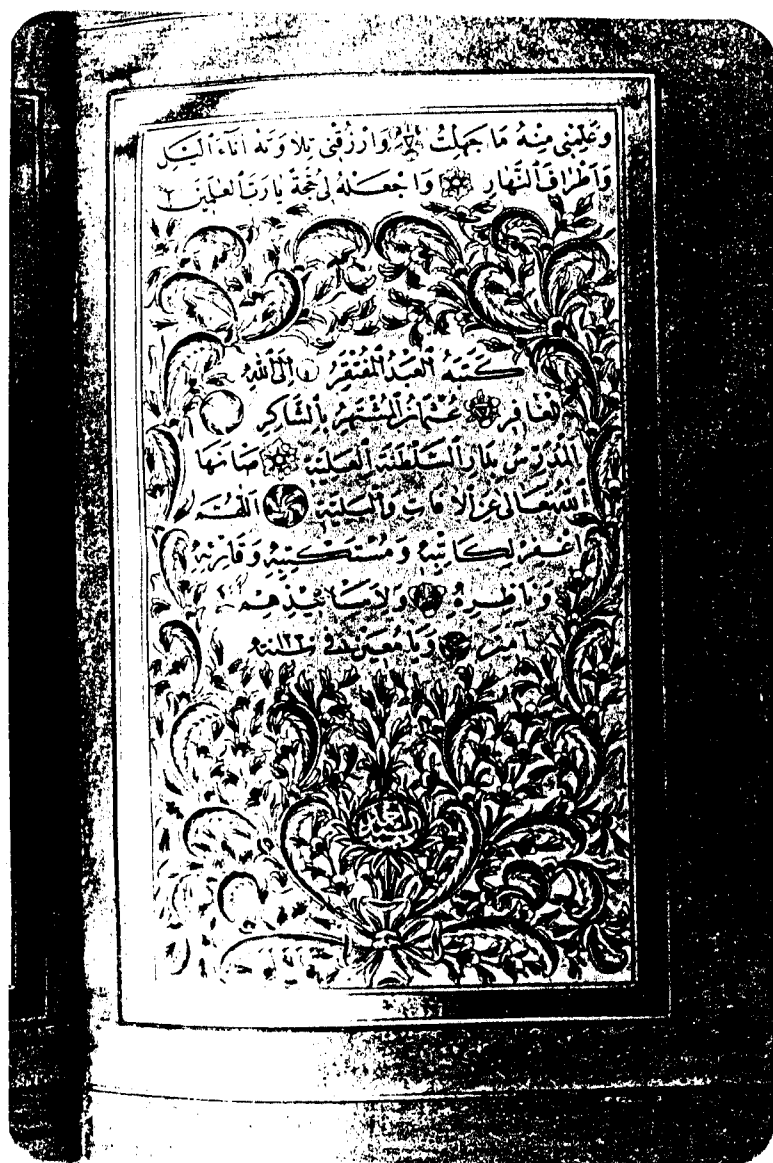 وَعَلِّمْنِي مِنْهُ مَا جَهِلْتُ وَارْزُقْنِي تِلَاوَتَهُ اٰنَاۤءَ الَّيْلِ
وَاَطْرَافَ النَّهَارِ وَاجْعَلْهُ لِي حُجَّةً يَا رَبَّ الْعٰلَمِينَ
كَتَبَهُ الْعَبْدُ الْمُفْتَقِرُ اِلَى اللّٰهِ
الْغَافِرِ عُثْمَانُ الْمُشْتَهِرُ بِالشَّاكِرِ
الْمُدَرِّسُ بِدَارِ السَّلْطَنَةِ الْعَلِيَّةِ صَانَهَا
اللّٰهُ تَعَالٰى عَنِ الْاٰفَاتِ وَالْبَلِيَّةِ اَللّٰهُمَّ
اغْفِرْ لِكَاتِبِهِ وَمُسْتَكْتِبِهِ وَقَارِئِهِ
وَنَاظِرِهِ وَلِاَسَاتِيذِهِمْ
اٰمِينَ وَيَا مُعِينُ فِي سَنَةِ